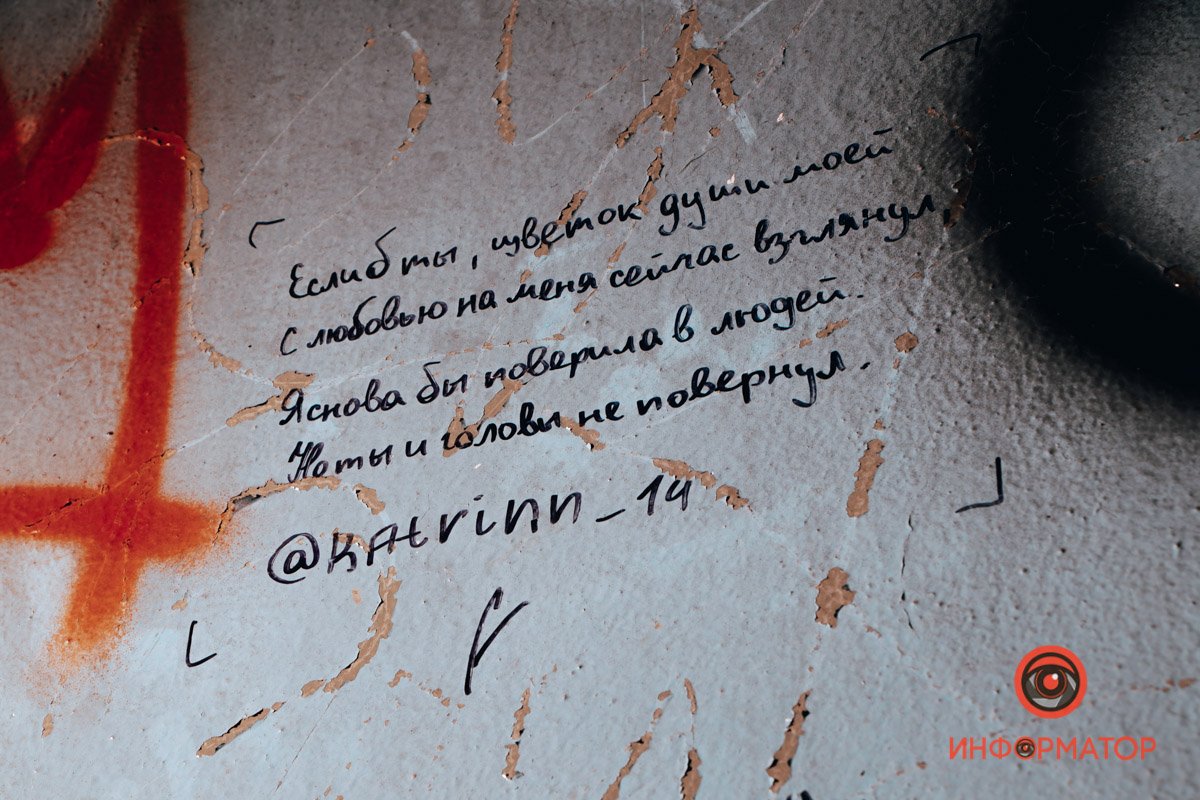 Еслиб ты, цветок души моей
С любовью на меня сейчас взглянул,
Я снова бы поверила в людей.
Но ты и головы не повернул.
@Katrinn_14
ИНФОРМАТОР